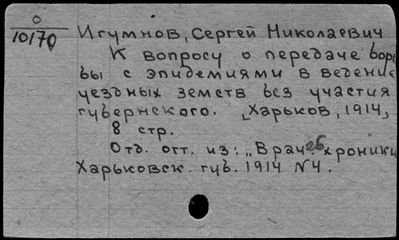 0
10170
Игумнов, Сергей Николаевич
К вопросу о передаче борь
бы с эпидемиями в ведение
уездных земств без участия
губернского. [Харьков, 1914,
8 стр.
Отд. отт. из: „Врачеб. хроники
Харьковск. губ. 1914 №4.